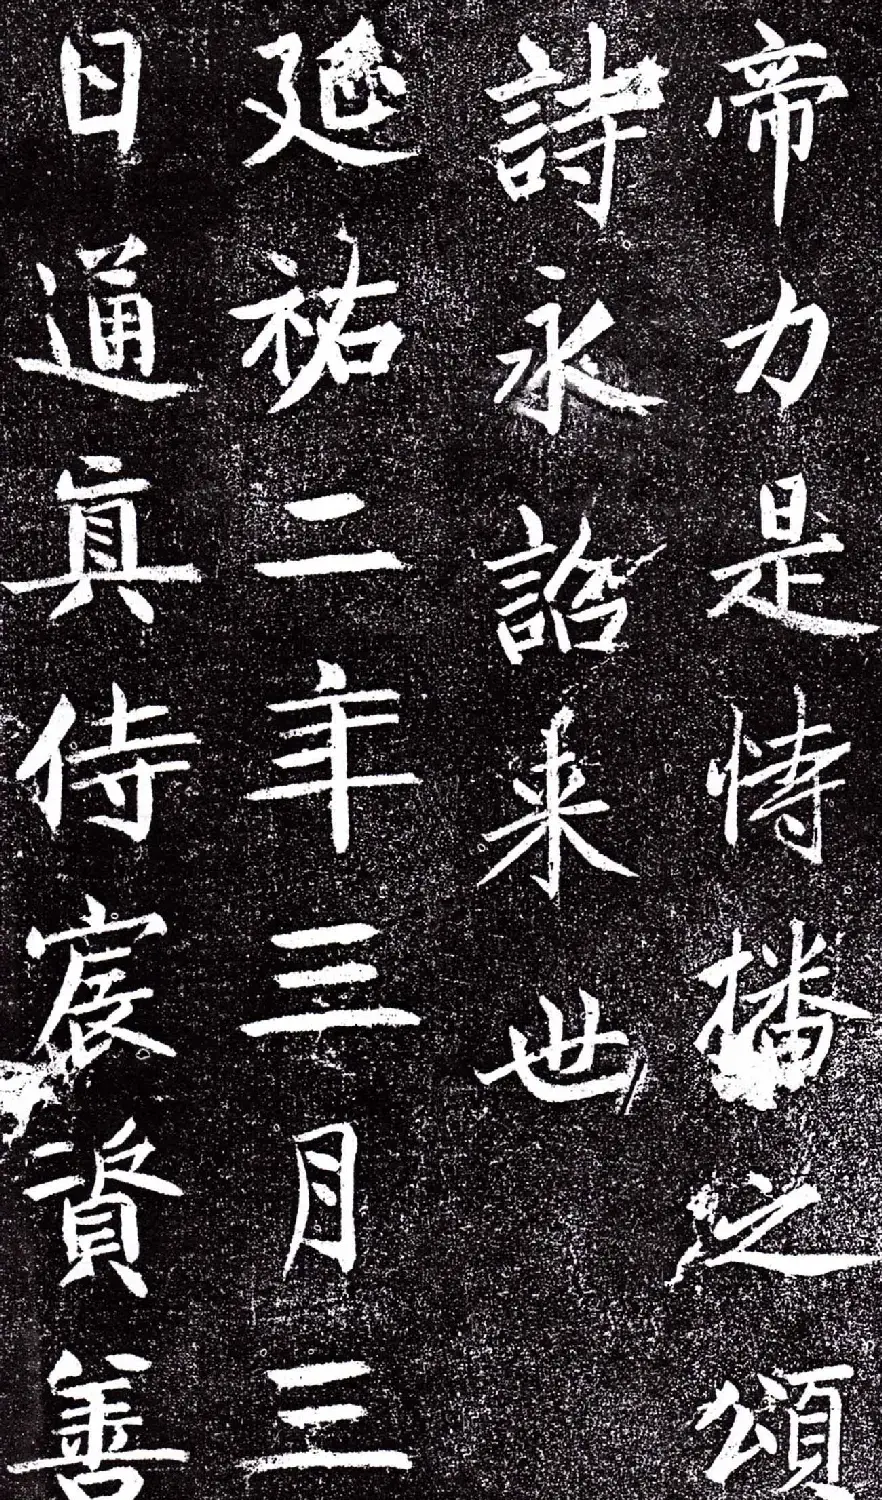 帝力是恃播之頌
詩永詔来世
延祐二年三月三
日通真侍宸資善